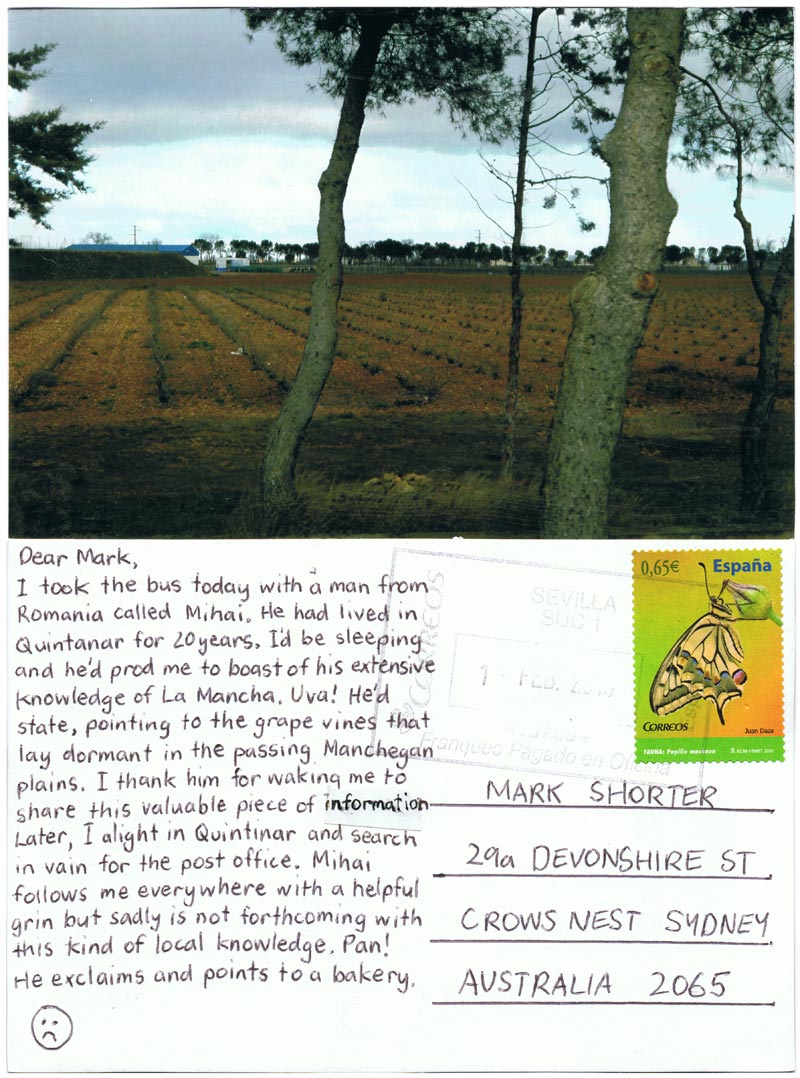 Dear Mark,
I took the bus today with a man from
Romania called Mihai. He had lived in
Quintanar for 20 years. I'd be sleeping
and he'd prod me to boast of his extensive
knowledge of La Mancha. Uva! He'd
state, pointing to the grape vines that
lay dormant in the passing Manchegan
plains. I thank him for waking me to
share this valuable piece of information
Later, I alight in Quintinar and search
in vain for the post office. Mihai
follows me everywhere with a helpful
grin but sadly is not forthcoming with
this kind of local knowledge. Pan!
He exclaims and points to a bakery.
CORREOS
SEVILLA
SUC 1
1 - FEB. 
Franqueo Pagado en Oficina
0,65€ España
CORREOS
Juan Daza
FAUNA: Papilio machaon
MARK SHORTER
29a DEVONSHIRE ST
CROWS NEST SYDNEY
AUSTRALIA 2065